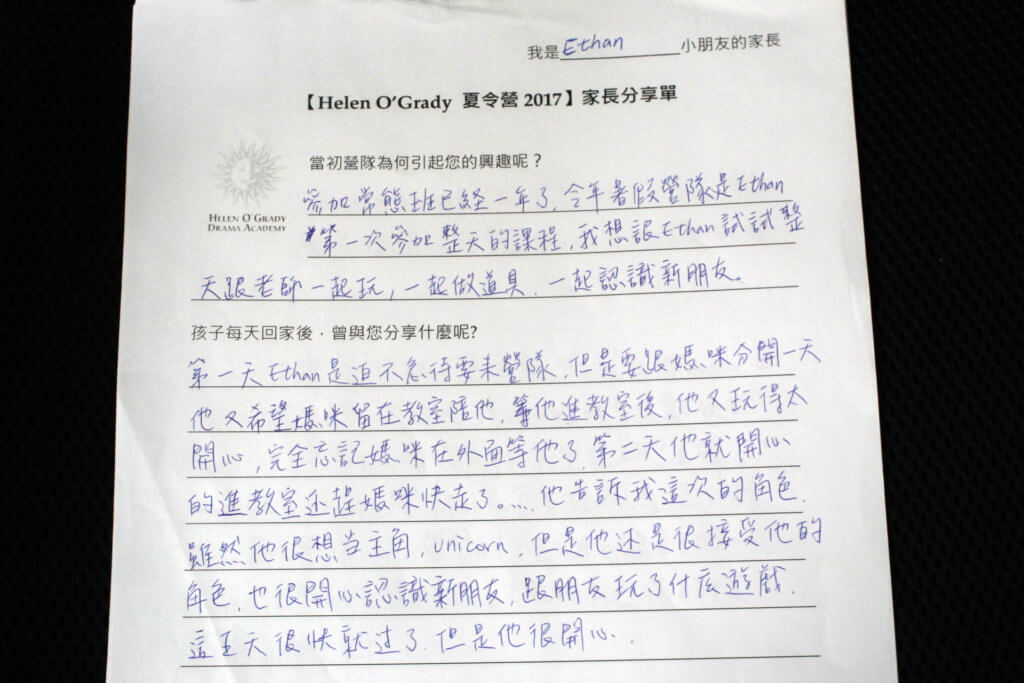 我是 Ethan 小朋友的家長
【Helen O'Grady 夏令營 2017】家長分享單
HELEN O'GRADY
DRAMA ACADEMY
當初營隊為何引起您的興趣呢？
參加常態班已経一年了,今年暑假營隊是Ethan
第一次參加整天的課程,我想讓Ethan試試整
天跟老師一起玩,一起做道具.一起認識新朋友。
孩子每天回家後，曾與您分享什麼呢?
第一天Ethan是迫不急待要来營隊,但是要跟媽咪分開一天
他又希望媽咪留在教室陪他,等他進教室後,他又玩得太
開心,完全忘記媽咪在外面等他了.第二天他就開心
的進教室还趕媽咪快走了。....他告訴我這次的角色.
雖然他很想当主角,unicorn,但是他还是很接受他的
角色,也很開心認識新朋友,跟朋友玩了什広遊戲.
這五天很快就过了.但是他很開心..